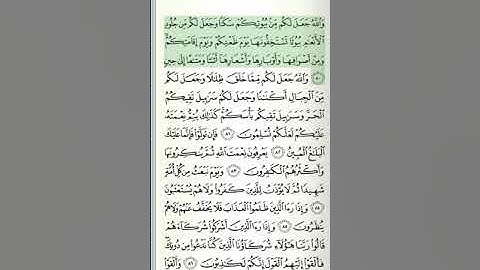 وَاللَّهُ جَعَلَ لَكُم مِّنۢ بُيُوتِكُمْ سَكَنًا وَجَعَلَ لَكُم مِّن جُلُودِ
الْأَنْعَامِ بُيُوتًا تَسْتَخِفُّونَهَا يَوْمَ ظَعْنِكُمْ وَيَوْمَ إِقَامَتِكُمْ
وَمِنْ أَصْوَافِهَا وَأَوْبَارِهَا وَأَشْعَارِهَا أَثَاثًا وَمَتَاعًا إِلَىٰ حِينٍ
٨٠ وَاللَّهُ جَعَلَ لَكُم مِّمَّا خَلَقَ ظِلَالًا وَجَعَلَ لَكُم
مِّنَ الْجِبَالِ أَكْنَانًا وَجَعَلَ لَكُمْ سَرَابِيلَ تَقِيكُمُ
الْحَرَّ وَسَرَابِيلَ تَقِيكُم بَأْسَكُمْ كَذَٰلِكَ يُتِمُّ نِعْمَتَهُ
عَلَيْكُمْ لَعَلَّكُمْ تُسْلِمُونَ ٨١ فَإِن تَوَلَّوْا فَإِنَّمَا عَلَيْكَ
الْبَلَاغُ الْمُبِينُ ٨٢ يَعْرِفُونَ نِعْمَتَ اللَّهِ ثُمَّ يُنكِرُونَهَا
وَأَكْثَرُهُمُ الْكَافِرُونَ ٨٣ وَيَوْمَ نَبْعَثُ مِن كُلِّ أُمَّةٍ
شَهِيدًا ثُمَّ لَا يُؤْذَنُ لِلَّذِينَ كَفَرُوا وَلَا هُمْ يُسْتَعْتَبُونَ
٨٤ وَإِذَا رَءَا الَّذِينَ ظَلَمُوا الْعَذَابَ فَلَا يُخَفَّفُ عَنْهُمْ وَلَا هُمْ
يُنظَرُونَ ٨٥ وَإِذَا رَءَا الَّذِينَ أَشْرَكُوا شُرَكَاءَهُمْ
قَالُوا رَبَّنَا هَٰؤُلَاءِ شُرَكَاؤُنَا الَّذِينَ كُنَّا نَدْعُوا مِن دُونِكَ
فَأَلْقَوْا إِلَيْهِمُ الْقَوْلَ إِنَّكُمْ لَكَاذِبُونَ ٨٦ وَأَلْقَوْا